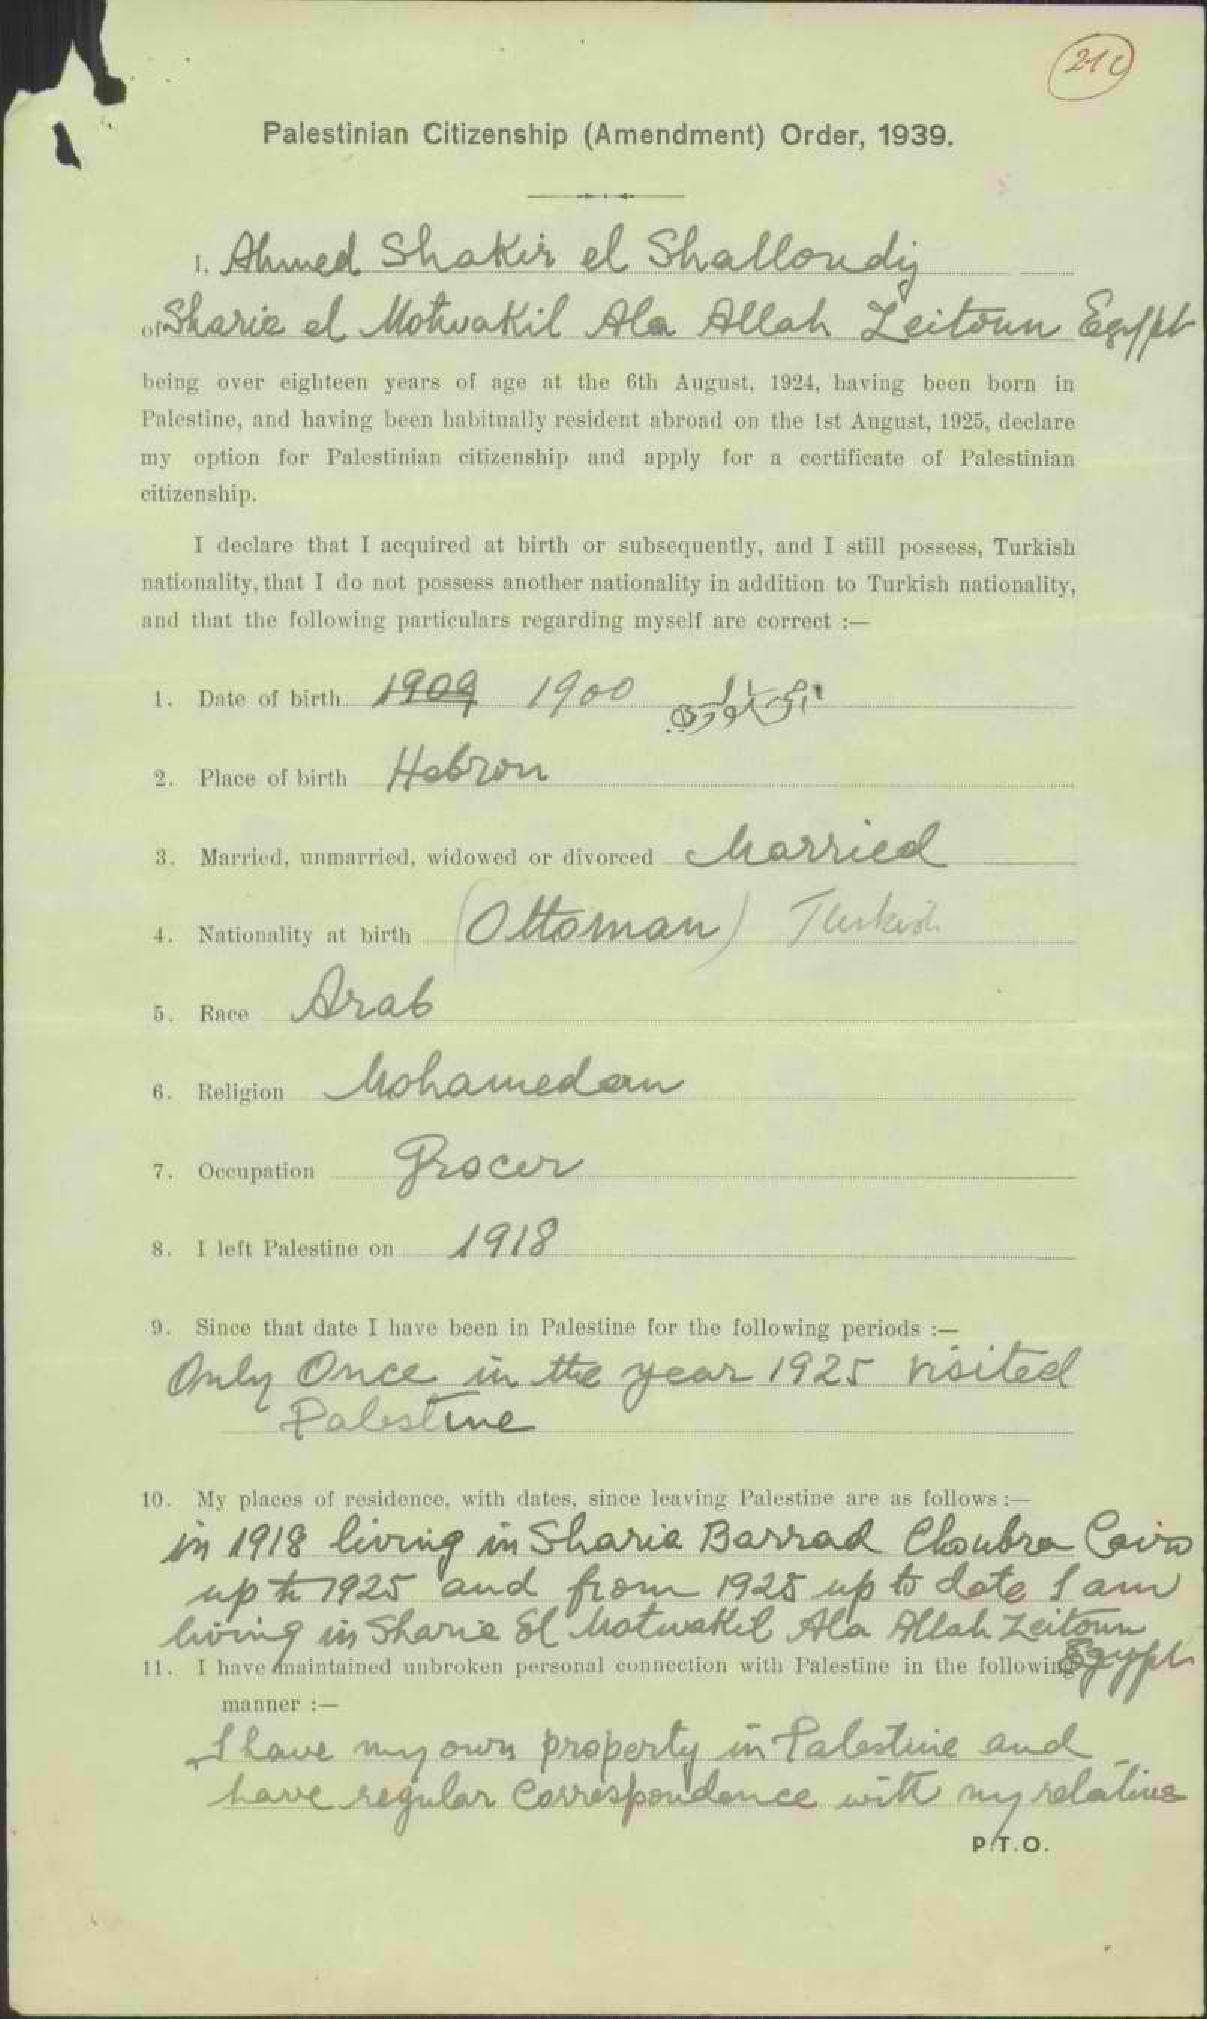 Palestinian Citizenship (Amendment) Order, 1939.
I, Ahmed Shakir el Shalloudy
of Sharia el Motwakil Ala Allah Zeitoun Egypt
being over eighteen years of age at the 6th August, 1924, having been born in
Palestine, and having been habitually resident abroad on the 1st August, 1925, declare
my option for Palestinian citizenship and apply for a certificate of Palestinian
citizenship.
I declare that I acquired at birth or subsequently, and I still possess, Turkish
nationality, that I do not possess another nationality in addition to Turkish nationality,
and that the following particulars regarding myself are correct :—
1. Date of birth 1909 1900
2. Place of birth Hebron
3. Married, unmarried, widowed or divorced Married
4. Nationality at birth (Ottoman) Turkish
5. Race Arab
6. Religion Mohamedan
7. Occupation Grocer
8. I left Palestine on 1918
9. Since that date I have been in Palestine for the following periods :—
Only Once in the year 1925 visited
Palestine
10. My places of residence, with dates, since leaving Palestine are as follows :—
in 1918 living in Sharia Barrad Choubra Cairo
up to 1925 and from 1925 up to date I am
living in Sharia El Motwakil Ala Allah Zeitoun
Egypt
11. I have maintained unbroken personal connection with Palestine in the following
manner :—
I have my own property in Palestine and
have regular Correspondence with my relative
P.T.O.